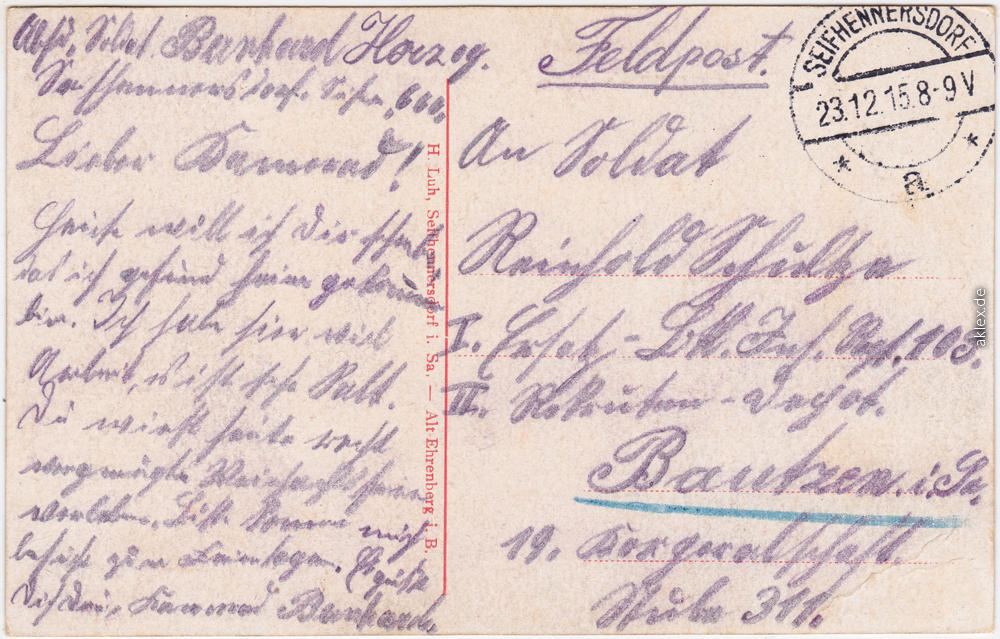 Abs. Soldat Bernhard Herzog.
Seifhennersdorf. Sachsen. 660.
Lieber Kamerad!
Heute will ich Dir schreiben
das ich gesund heim gekommen
bin. Ich habe hier viel
Arbeit, es ist sehr kalt.
Du wirst heute recht
vergnügte Weihnachtsferien
verleben. Bitte komme mich
besuchen zu den Feiertagen. Es grüßt
Dich Dein Kamerad Bernhard.
H. Luh, Seifhennersdorf i. Sa. — Alt Ehrenberg i. B.
Feldpost.
SEIFHENNERSDORF
23.12.15.8-9V
* a *
An Soldat
Reinhold Schultze
I. Ersatz-Btl. Inf. Regt. 103.
III. Rekruten-Depot.
Bautzen i. Sa.
19. Korporalschaft.
Stube 311.
aklex.de